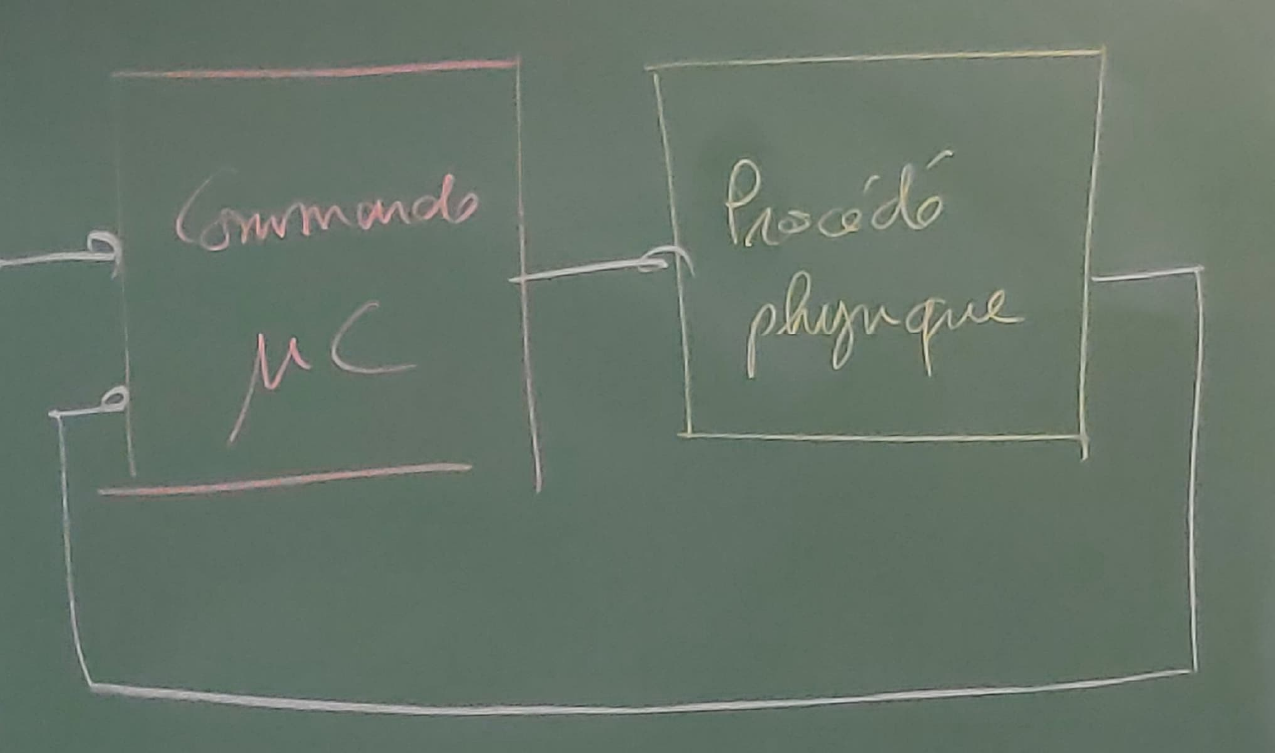 Commande
μC
Procédé
physique